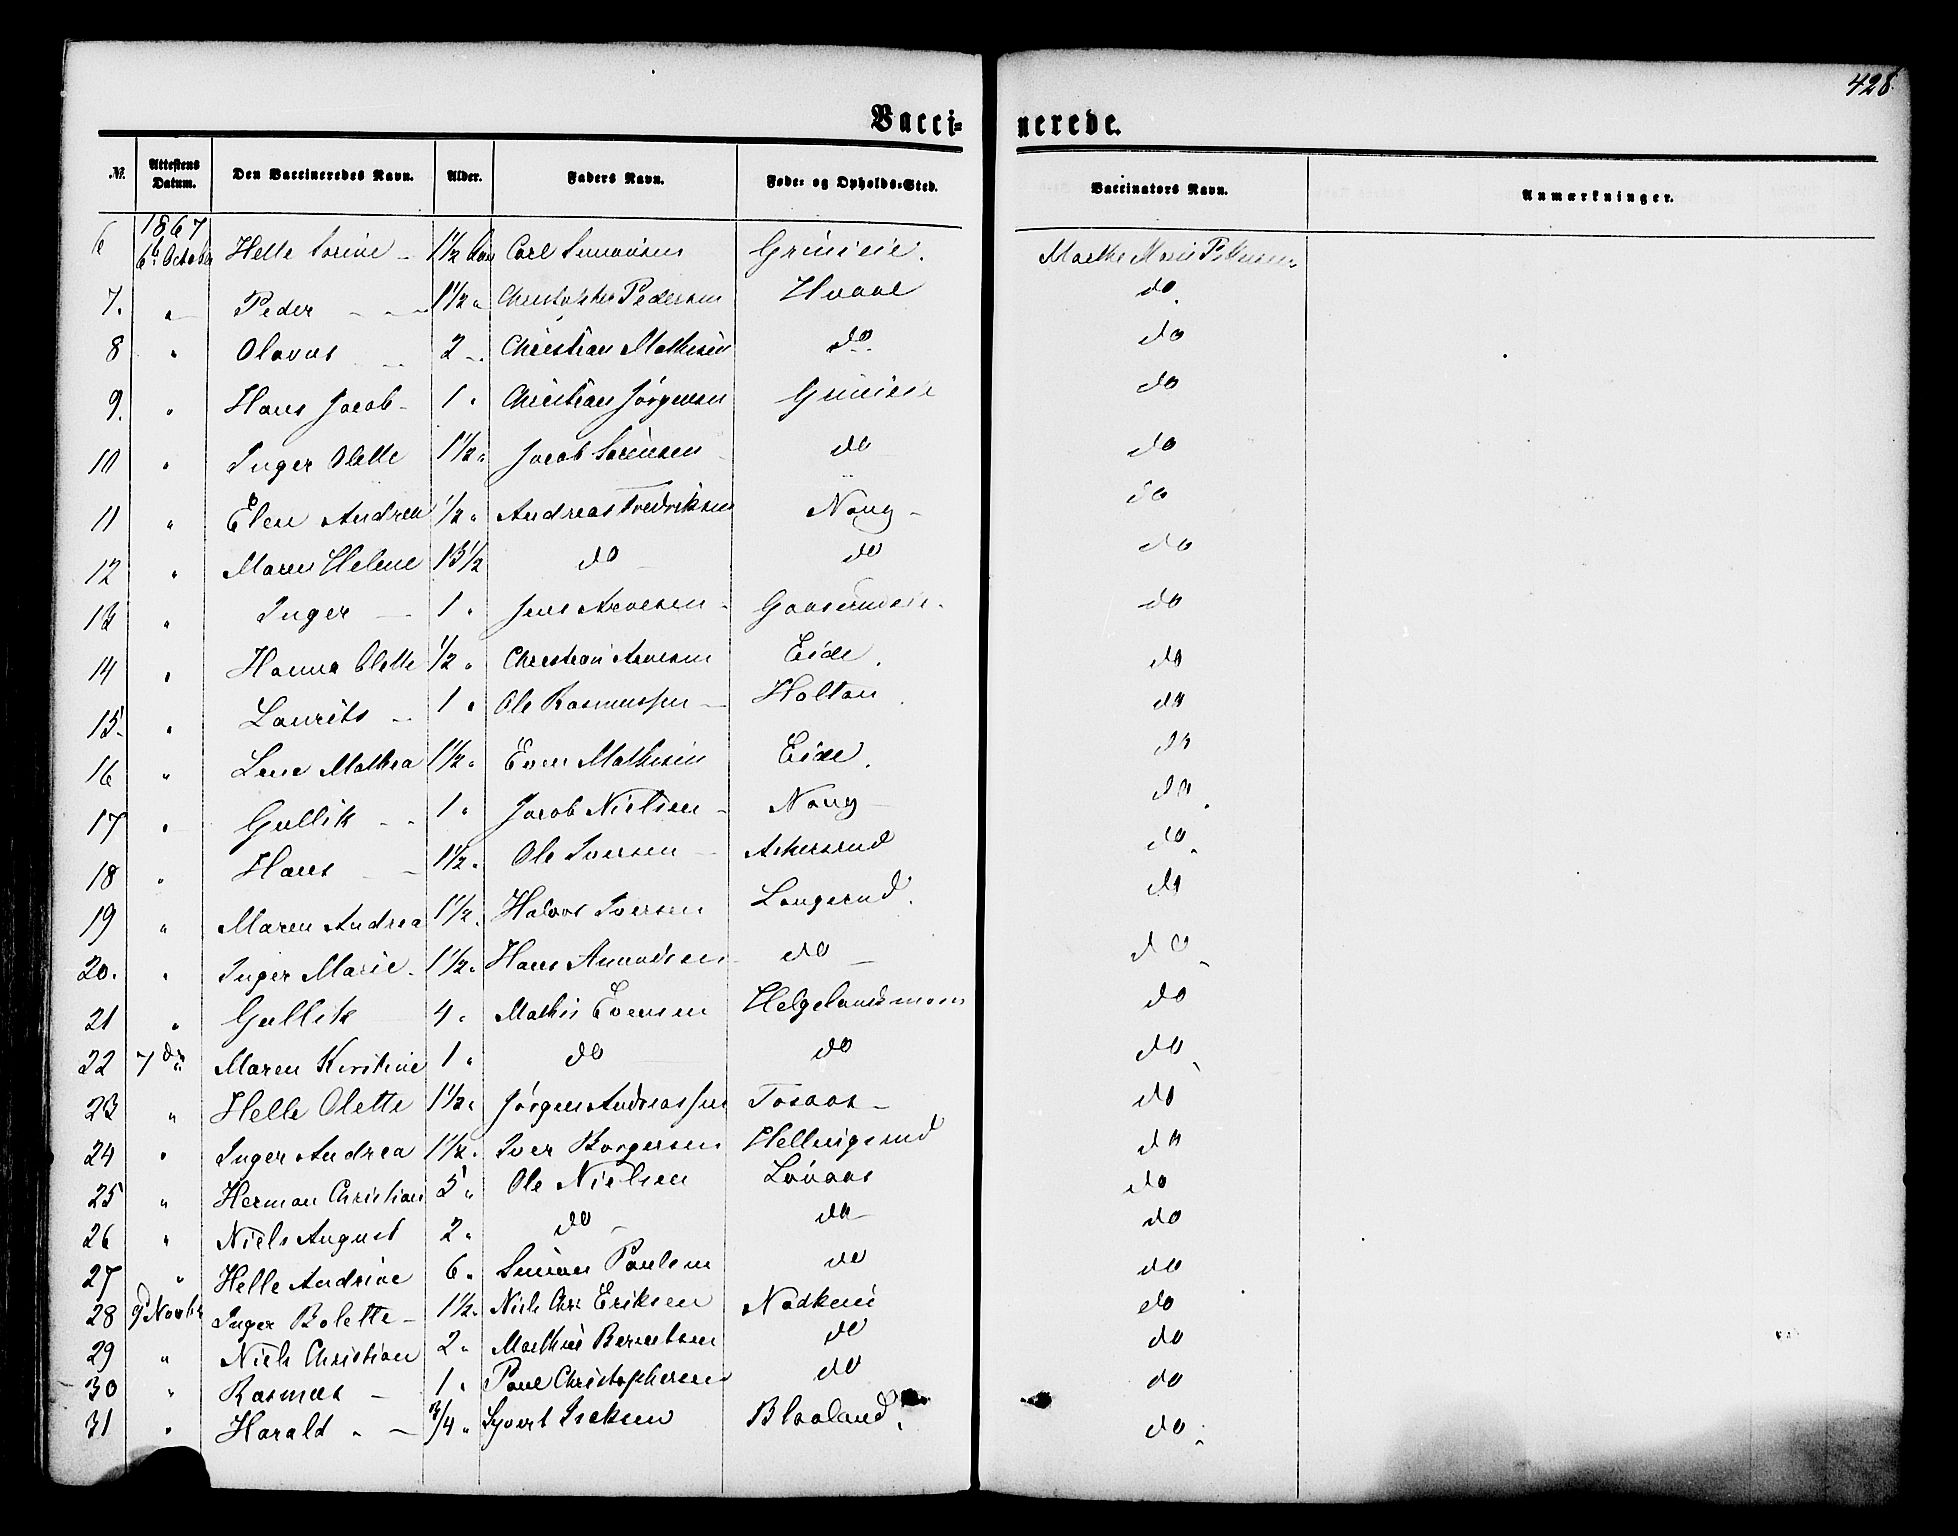 428
Vacci= nerede.
№ Attestens Datum. Den Vaccineredes Navn. Alder. Faders Navn. Føde- og Opholds-Sted. Vaccinators Navn. Anmærkninger.
1867
6 6te October Helle Sorine - 1½ Carl Simonsen Grinieie. Marthe Marie Petersen
7. " Peder - - - 1½ " Christopher Pedersen Hvaal do.
8 " Olavus 2 - Christian Mathisen do. do
9. " Hans Jacob - 1 " Christian Jørgensen Grinieie do
10 " Inger Olette 1½ " Jacob Sørensen do do
11 " Elen Andrea ½ " Andreas Fredriksen Narug - do
12 " Maren Helene 13½ do - do do
13 " Inger - 1 " Jens Arvesen - do
14 " Hanna Olette ½ " Christian Arvesen Eide. do
15. " Laurits - 1 " Ole Rasmussen - Holtan. do
16 " Lene Mathea 1½ " Even Mathisen Eide. do
17 " Gullik - - 1 " Jacob Nielsen - Narug - do.
18 " Hans - - 1½ " Ole Iversen - Askerud do.
19 " Maren Andrea 1½ " Halvor Iversen Langerud. do
20. " Inger Marie - 1½ " Hans Amundsen do - do -
21 " Gullik 4 " Mathis Evensen Helgelandsmoen do
22 7 do Maren Kirstine 1 " do do do
23 " Helle Olette 1½ " Jørgen Andreassen Tosaas - do
24 " Inger Andrea 1½ " Iver Borgersen Hellingsrud do
25 " Herman Christian 5 " Ole Nielsen Løvaas do
26 " Niels August 2 " do - do - do
27 " Helle Andrine 6 " Simon Paulsen do do
28 9 Novbr Inger Bolette - 1½ " Niels Chr. Eriksen do
29 " Niels Christian 2 " Mathias Berntsen do do
30 " Rasmus - 1 " Paul Christophersen do do
31 " Harald " - 3/4 " Syvert Isaksen Blaaland. do.